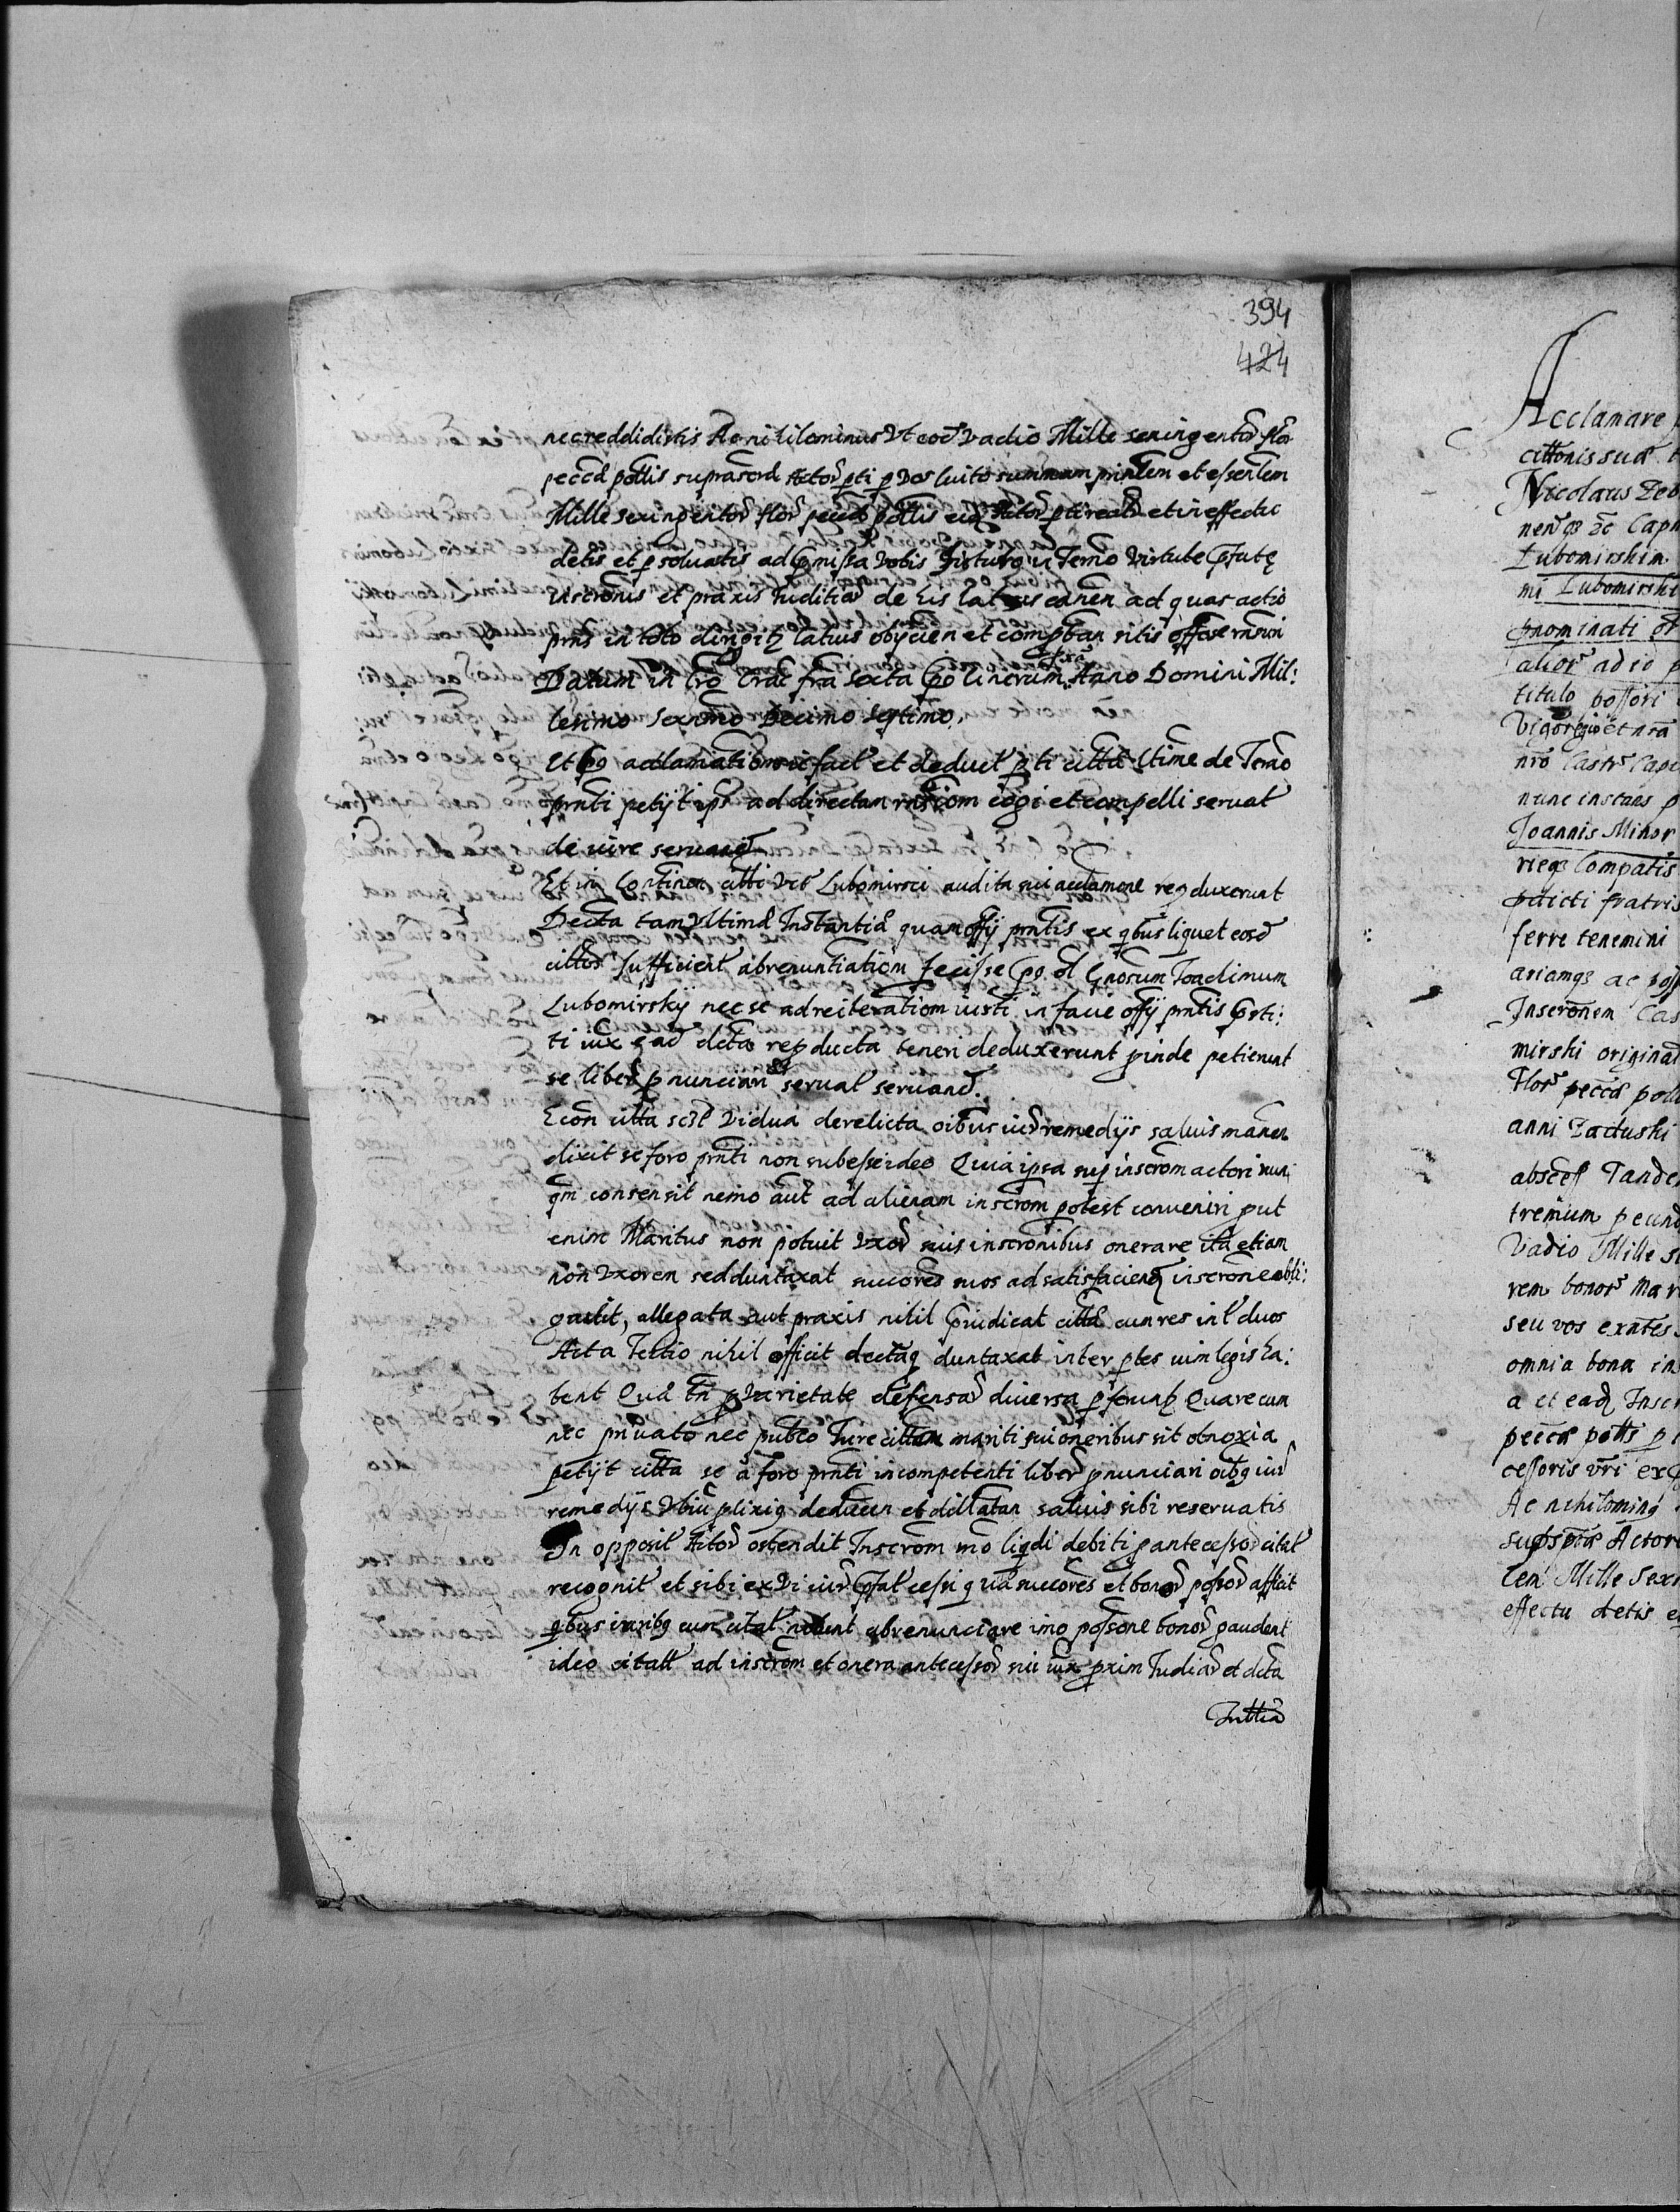 394
424
nec reddidistis Ac nihilominus Vt eod Vadio Mille sexingentor flor
peccd pollis suprascrd Actor pti p Vos luito summam prinlem et essenlem
Mille sexingentor flor peccd pollis eidq Actor pti realr et in effectu
detis et psoluatis ad pmissa Vobis in Termo Virtute pfatę
inscronis et praxis Juditiar de his latius eanen ad quas actio
pns in toto dirigitz latius obycien et comptran ritis offose rnsuri
Datum in Cro Crac fra sexta po Cinerum Anno Domini Mil:
lesimo Sexcmo Decimo Septimo.
Et po acclamationis fact et deduct pti cittā Utime de Termo
prnti petijt ips ad directam rnsiom cogi et compelli seruat
de iure seruand
Et in Continen citti Vts Lubomirsci audita sui acclamone repduxerunt
Decta tam Vltimę Instantię quam offy prntis ex qbus liquet eosd
cittos sufficient abrenuntiatiom fecisse po ol Gnosum Joachimum
Lubomirskij nec se ad reiteratiom iusti in facie offy prntis psti:
ti iux ead dcta repducta teneri deduxerunt pinde petierunt
se liber pnunciari seruat seruand.
Econ citta scit Vidua derelicta oibus iur remedijs saluis manen
dixit se foro prnti non subesse ideo Quia ipsa suj inscrom actori nun
qm consensit nemo aut ad alienam inscrom potest conueniri put
enim Maritus non potuit Vxor suis inscronibus onerare ita etiam
non Vxorem sed duntaxat succores suos ad satisfaciend inscrone obli:
gauit, allegata aut praxis nihil piudicat cittę cum res inter duos
Acta Tertio nihil officit dectaq duntaxat inter ptes uim legis ha:
bent Quā tn p Varietate defensar diuersa pferunt Quare cum
nec priuato nec publico Jure cittam mariti sui oneribus sit obnoxia
petijt citta se a foro prnti incompetenti liber pnunciari oibq iur
remedijs Vbiu plixiq deducen et dillatan saluis sibi reseruatis
In opposit Actor ostendit Inscrom mo liqdi debiti p antecessor citat
recognit et sibi ex Vi iur pfat cessi q uia succores et bonor possor afficit
qbus iuribq cum citat nolunt abrenunciare imo possone bonor gaudent
ideo citatt ad inscrom et onera antecessor sui iux pxim Judiar et dcta
Juttia
Acclamare
cittonis suę
Nicolaus Zeb
nen qs zc Capit
Lubomirskim
mi Lubomirski
pnominati
alior ad id p
titulo possori
Vigor
nro Castr Capi
nunc instans p
Joannis Minor
rieqs Compatis
pdicti fratris
ferre tenemini
ariamqs ac poss
Inscronem Cas
mirski original
Flor peccā poll
anni Zactuski
abscess Tande
tremum pecun
Vadio Mille s
rem bonor Mar
seu vos exntes
omnia bona in
a et eadq Inscr
peccā pollis p
cessoris vri ex
Ac nihilominq
supspta Actor
lem Mille Sex
effectu detis e